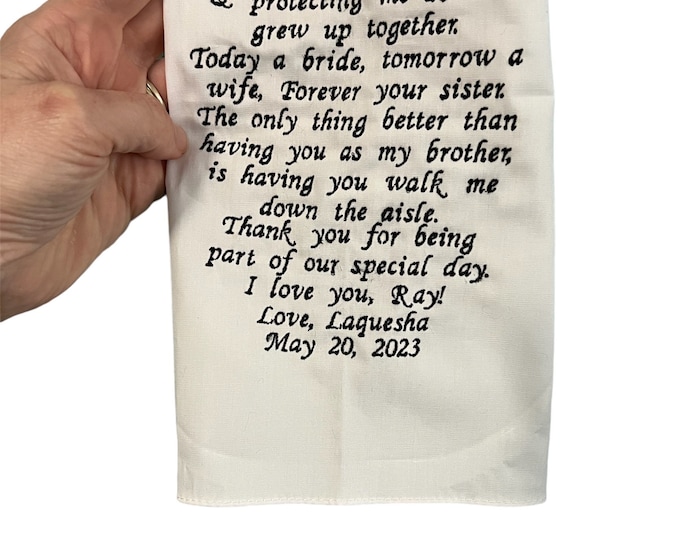 & protecting me
grew up together.
Today a bride, tomorrow a
wife, Forever your sister.
The only thing better than
having you as my brother,
is having you walk me
down the aisle.
Thank you for being
part of our special day.
I love you, Ray!
Love, Laquesha
May 20, 2023